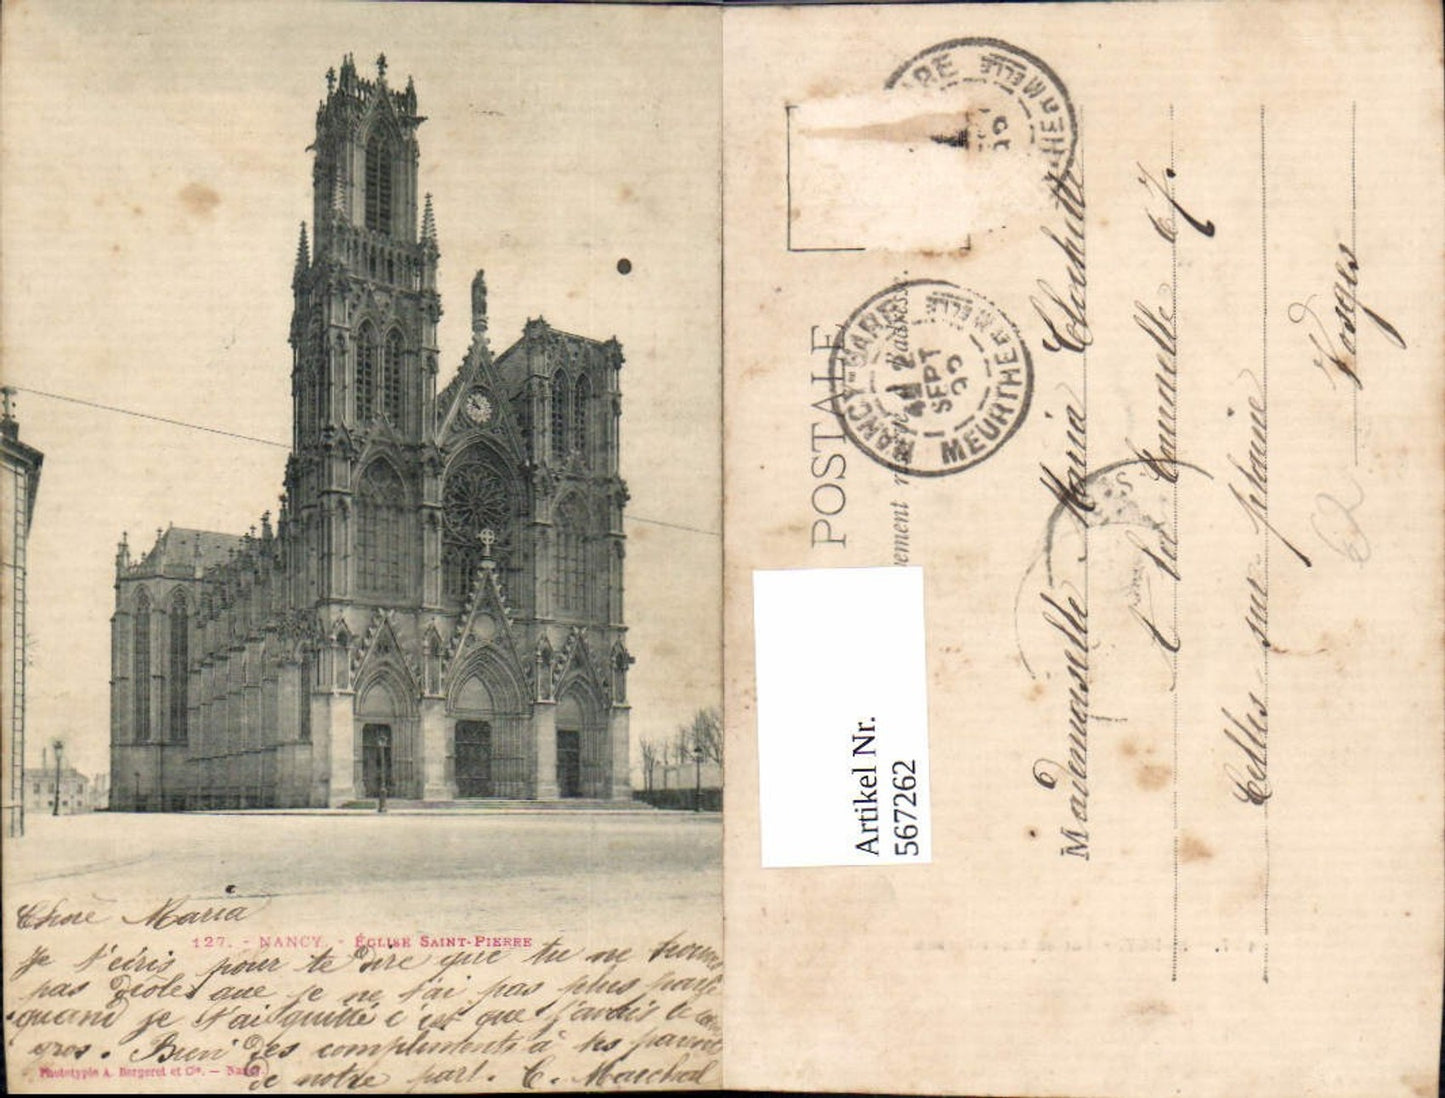 Chère Maria
127. - NANCY. - ÉGLISE SAINT-PIERRE
Je t'ecris pour te dire que tu ne trouve
pas drôle que je ne t'ai pas plus parlé
quand je t'ai quitté c'est que j'avais le cœur
gros. Bien des compliments à tes parents
de notre part. C. Marchal
Phototypie A. Bergeret et Cie. — Nancy.
POSTALE
l'adresse.
NANCY-GARE
MEURTHE
SEPT
Artikel Nr.
567262
Mademoiselle Maria
Celles sur plaine
Vosges